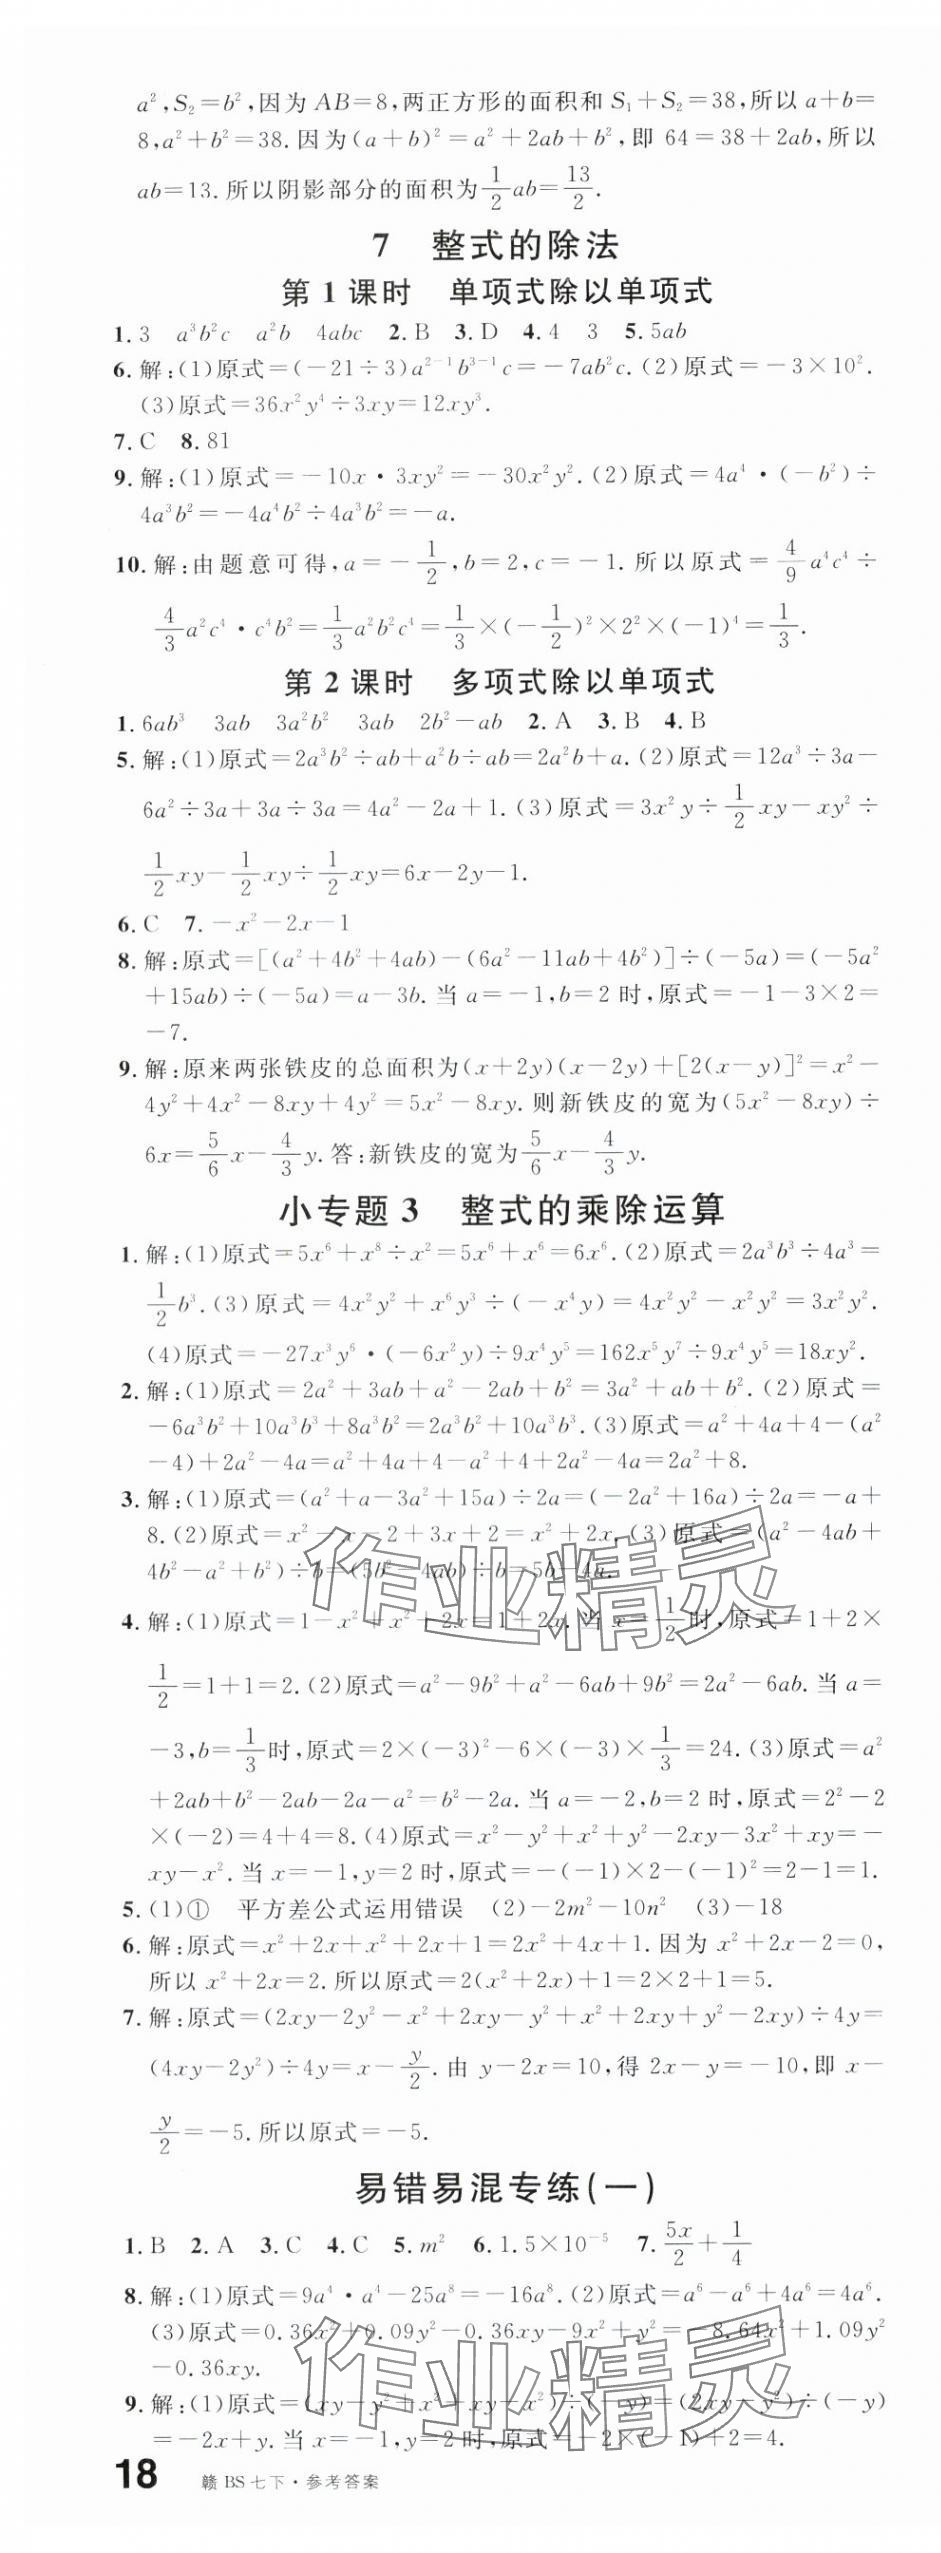 a²,S₂=b²,因为 AB=8,两正方形的面积和 S₁+S₂=38,所以 a+b=
8,a²+b²=38.因为(a+b)²=a²+2ab+b²,即 64=38+2ab,所以
ab=13.所以阴影部分的面积为1/2ab=13/2.
7 整式的除法
第 1 课时 单项式除以单项式
1.3 a³b²c a²b 4abc 2.B 3.D 4.4 3 5.5ab
6.解:(1)原式=(-21÷3)a²⁻¹b³⁻¹c=-7ab²c.(2)原式=-3×10².
(3)原式=36x²y⁴÷3xy=12xy³.
7.C 8.81
9.解:(1)原式=-10x·3xy²=-30x²y².(2)原式=4a⁴·(-b²)÷
4a³b²=-4a⁴b²÷4a³b²=-a.
10.解:由题意可得,a=-1/2,b=2,c=-1.所以原式=4/9a⁴c⁴÷
4/3a²c⁴·c⁴b²=1/3a²b²c⁴=1/3×(-1/2)²×2²×(-1)⁴=1/3.
第 2 课时 多项式除以单项式
1.6ab³ 3ab 3a²b² 3ab 2b²-ab 2.A 3.B 4.B
5.解:(1)原式=2a³b²÷ab+a²b÷ab=2a²b+a.(2)原式=12a³÷3a-
6a²÷3a+3a÷3a=4a²-2a+1.(3)原式=3x²y÷1/2xy-xy²÷
1/2xy-1/2xy÷1/2xy=6x-2y-1.
6.C 7.-x²-2x-1
8.解:原式=[(a²+4b²+4ab)-(6a²-11ab+4b²)]÷(-5a)=(-5a²
+15ab)÷(-5a)=a-3b.当 a=-1,b=2 时,原式=-1-3×2=
-7.
9.解:原来两张铁皮的总面积为(x+2y)(x-2y)+[2(x-y)]²=x²-
4y²+4x²-8xy+4y²=5x²-8xy.则新铁皮的宽为(5x²-8xy)÷
6x=5/6x-4/3y.答:新铁皮的宽为5/6x-4/3y.
小专题 3 整式的乘除运算
1.解:(1)原式=5x⁶+x⁸÷x²=5x⁶+x⁶=6x⁶.(2)原式=2a³b³÷4a³=
1/2b³.(3)原式=4x²y²+x⁶y³÷(-x⁴y)=4x²y²-x²y²=3x²y².
(4)原式=-27x³y⁶·(-6x²y)÷9x⁴y⁵=162x⁵y⁷÷9x⁴y⁵=18xy².
2.解:(1)原式=2a²+3ab+a²-2ab+b²=3a²+ab+b².(2)原式=
-6a³b²+10a³b³+8a³b²=2a³b²+10a³b³.(3)原式=a²+4a+4-(a²
-4)+2a²-4a=a²+4a+4-a²+4+2a²-4a=2a²+8.
3.解:(1)原式=(a²+a-3a²+15a)÷2a=(-2a²+16a)÷2a=-a+
8.(2)原式=x²-x-2+3x+2=x²+2x.(3)原式=(a²-4ab+
4b²-a²+b²)÷b=(5b²-4ab)÷b=5b-4a.
4.解:(1)原式=1-x²+x²+2x=1+2x.当 x=1/2时,原式=1+2×
1/2=1+1=2.(2)原式=a²-9b²+a²-6ab+9b²=2a²-6ab.当 a=
-3,b=1/3时,原式=2×(-3)²-6×(-3)×1/3=24.(3)原式=a²
+2ab+b²-2ab-2a-a²=b²-2a.当 a=-2,b=2 时,原式=2²-2
×(-2)=4+4=8.(4)原式=x²-y²+x²+y²-2xy-3x²+xy=-
xy-x².当 x=-1,y=2 时,原式=-(-1)×2-(-1)²=2-1=1.
5.(1)① 平方差公式运用错误 (2)-2m²-10n² (3)-18
6.解:原式=x²+2x+x²+2x+1=2x²+4x+1.因为 x²+2x-2=0,
所以 x²+2x=2.所以原式=2(x²+2x)+1=2×2+1=5.
7.解:原式=(2xy-2y²-x²+2xy-y²+x²+2xy+y²-2xy)÷4y=
(4xy-2y²)÷4y=x-y/2.由 y-2x=10,得 2x-y=-10,即 x-
y/2=-5.所以原式=-5.
易错易混专练(一)
1.B 2.A 3.C 4.C 5.m² 6.1.5×10⁻⁵ 7.5x/2+1/4
8.解:(1)原式=9a⁴·a⁴-25a⁸=-16a⁸.(2)原式=a⁶-a⁶+4a⁶=4a⁶.
(3)原式=0.36x²+0.09y²-0.36xy-9x²+y²=-8.64x²+1.09y²
-0.36xy.
9.解:(1)原式=(xy-y²+x²+xy-x²)÷(-y)=(2xy-y²)÷(-y)
=-2x+y.当 x=-1,y=2时,原式=-2×(-1)+2=4.
18 赣 BS 七下·参考答案
作业精灵
作业精灵